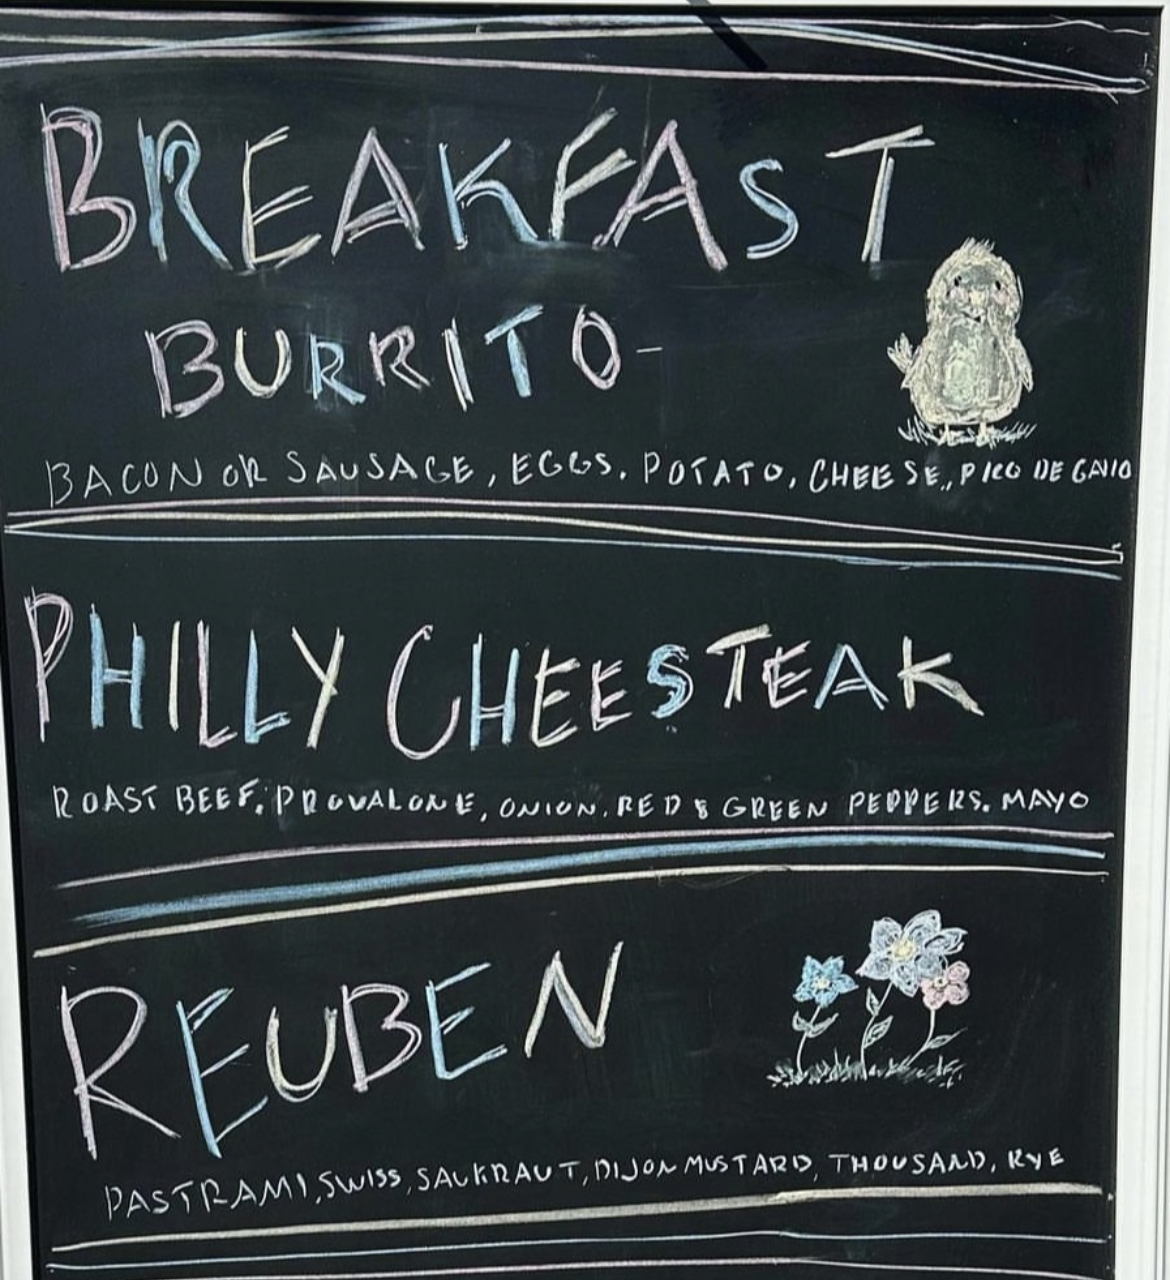 BREAKFAST
BURRITO-
BACON OR SAUSAGE, EGGS, POTATO, CHEESE, PICO DE GAIO
PHILLY CHEESTEAK
ROAST BEEF, PROVALONE, ONION, RED & GREEN PEPPERS. MAYO
REUBEN
PASTRAMI, SWISS, SAUKRAUT, DIJON MUSTARD, THOUSAND, RYE